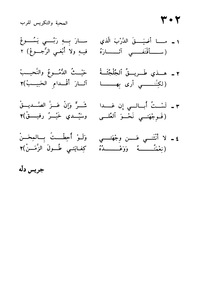 ٣٠٢
المحبة والتكريس للرب
١ - ما أضيق الدرب الذي سار به ربي يسوع
(سأقتفي آثاره فيه ولا أبغي الرجوع)
٢ - هذي طريق الجلجثة حيث الدموع والنحيب
(لكنني أرى بها آثار أقدام الحبيب)
٣ - لست أبالي إن غدا شر وإن عز الصديق
(فوجهتي نحو العلى وسيدي خير رفيق)
٤ - لا أنثني عن وجهتي ولو أحطت بالمحن
(نعمته ووعده كفايتي طول الزمن)
جريس دله